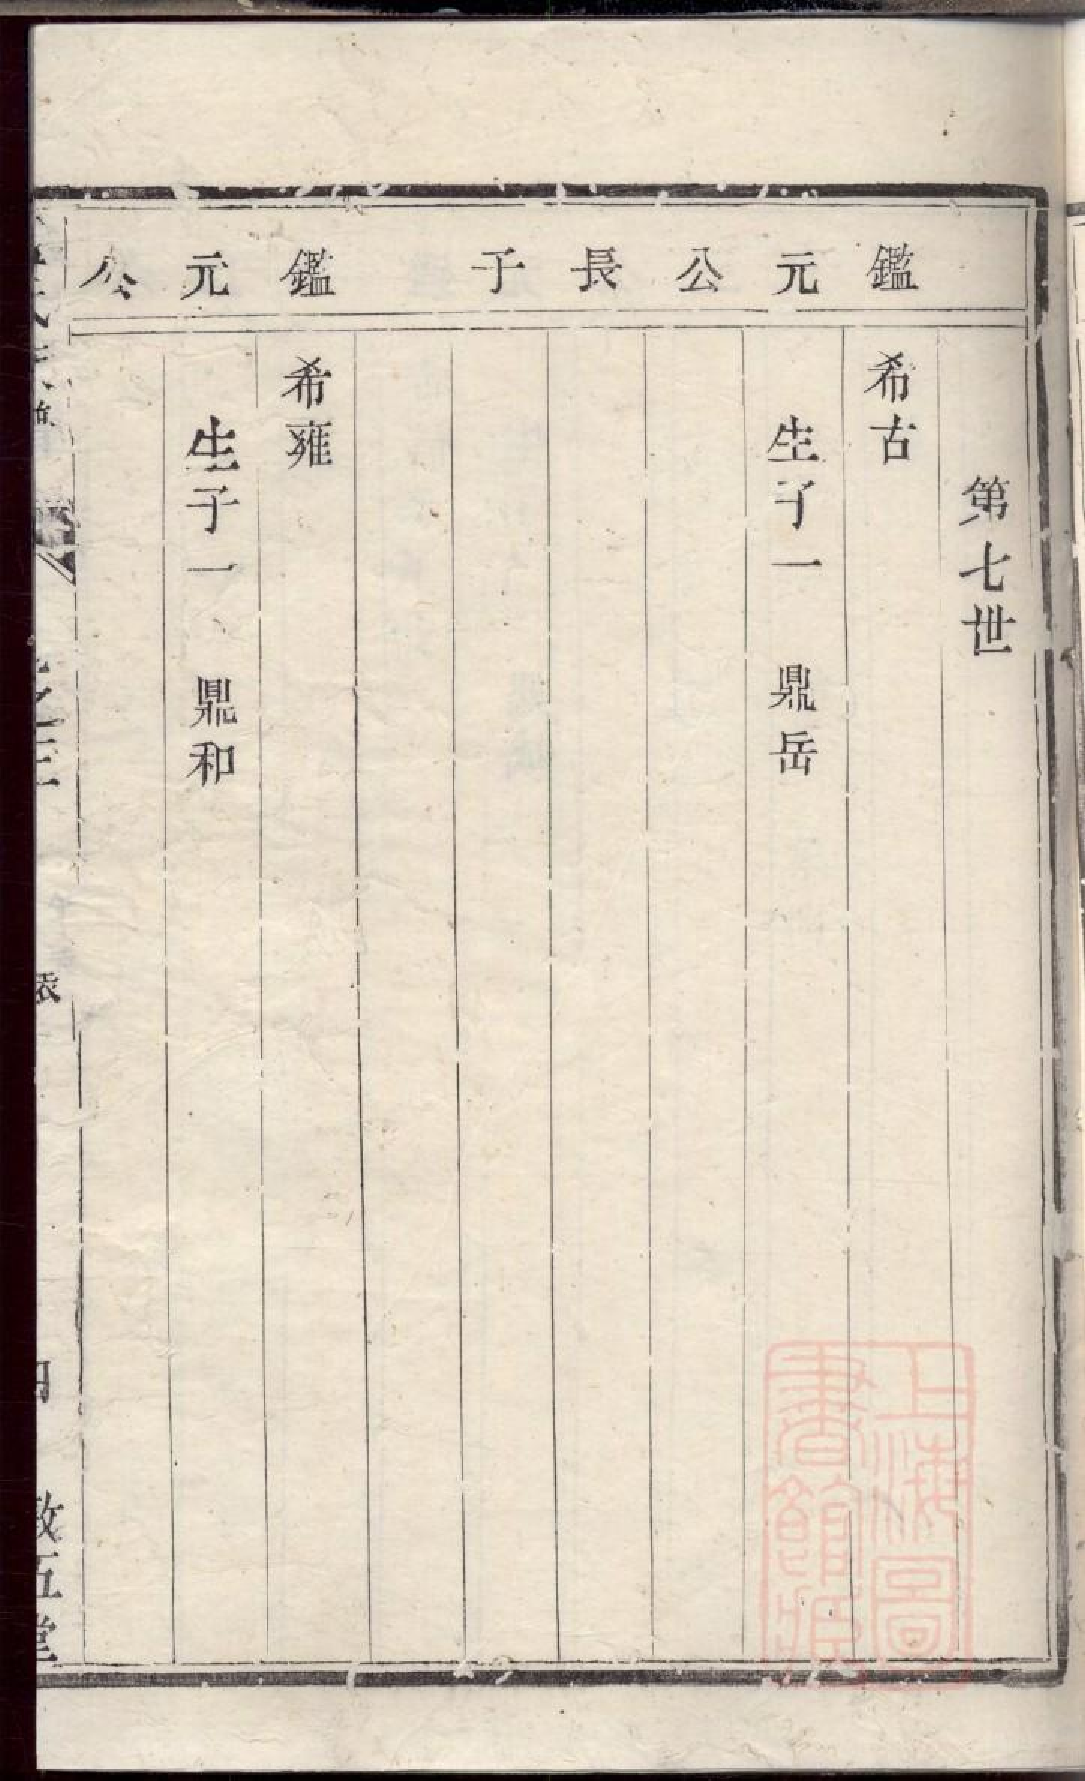 鑑元公長子
鑑元公
第七世
希古
生子一　鼎岳
希雍
生子一　鼎和
之三
表
四
敦五堂
上海圖
書館藏